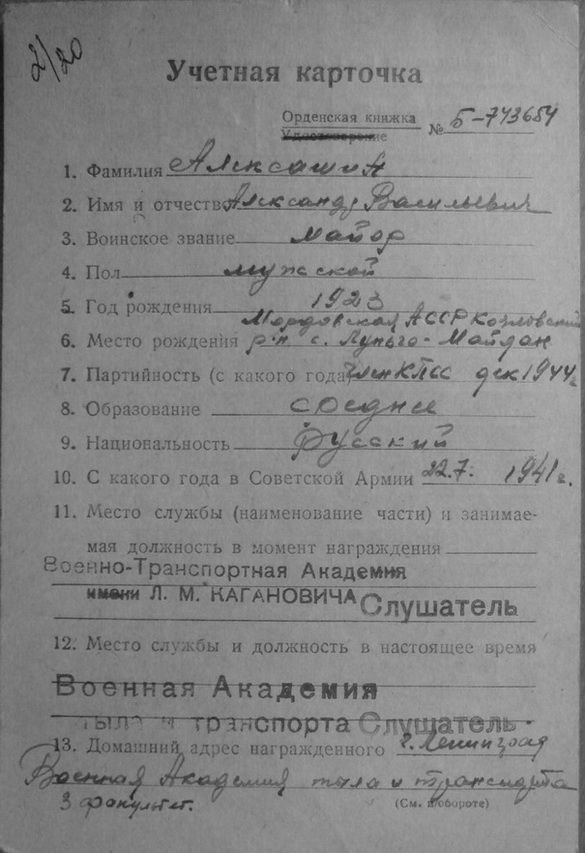 2/20
Учетная карточка
Орденская книжка
Удостоверение № Б-743654
1. Фамилия Алексашин
2. Имя и отчество Александр Васильевич
3. Воинское звание майор
4. Пол мужской
5. Год рождения 1923
Мордовская АССР Козловский
6. Место рождения р-н с. Луньго-Майдан
7. Партийность (с какого года) член КПСС дек 1944г
8. Образование среднее
9. Национальность Русский
10. С какого года в Советской Армии 22.7. 1941г.
11. Место службы (наименование части) и занимае-
мая должность в момент награждения
Военно-Транспортная Академия
имени Л. М. КАГАНОВИЧА Слушатель
12. Место службы и должность в настоящее время
Военная Академия
тыла и транспорта Слушатель.
13. Домашний адрес награжденного г. Ленинград
Военная Академия тыла и транспорта
3 факультет.
(См. на обороте)